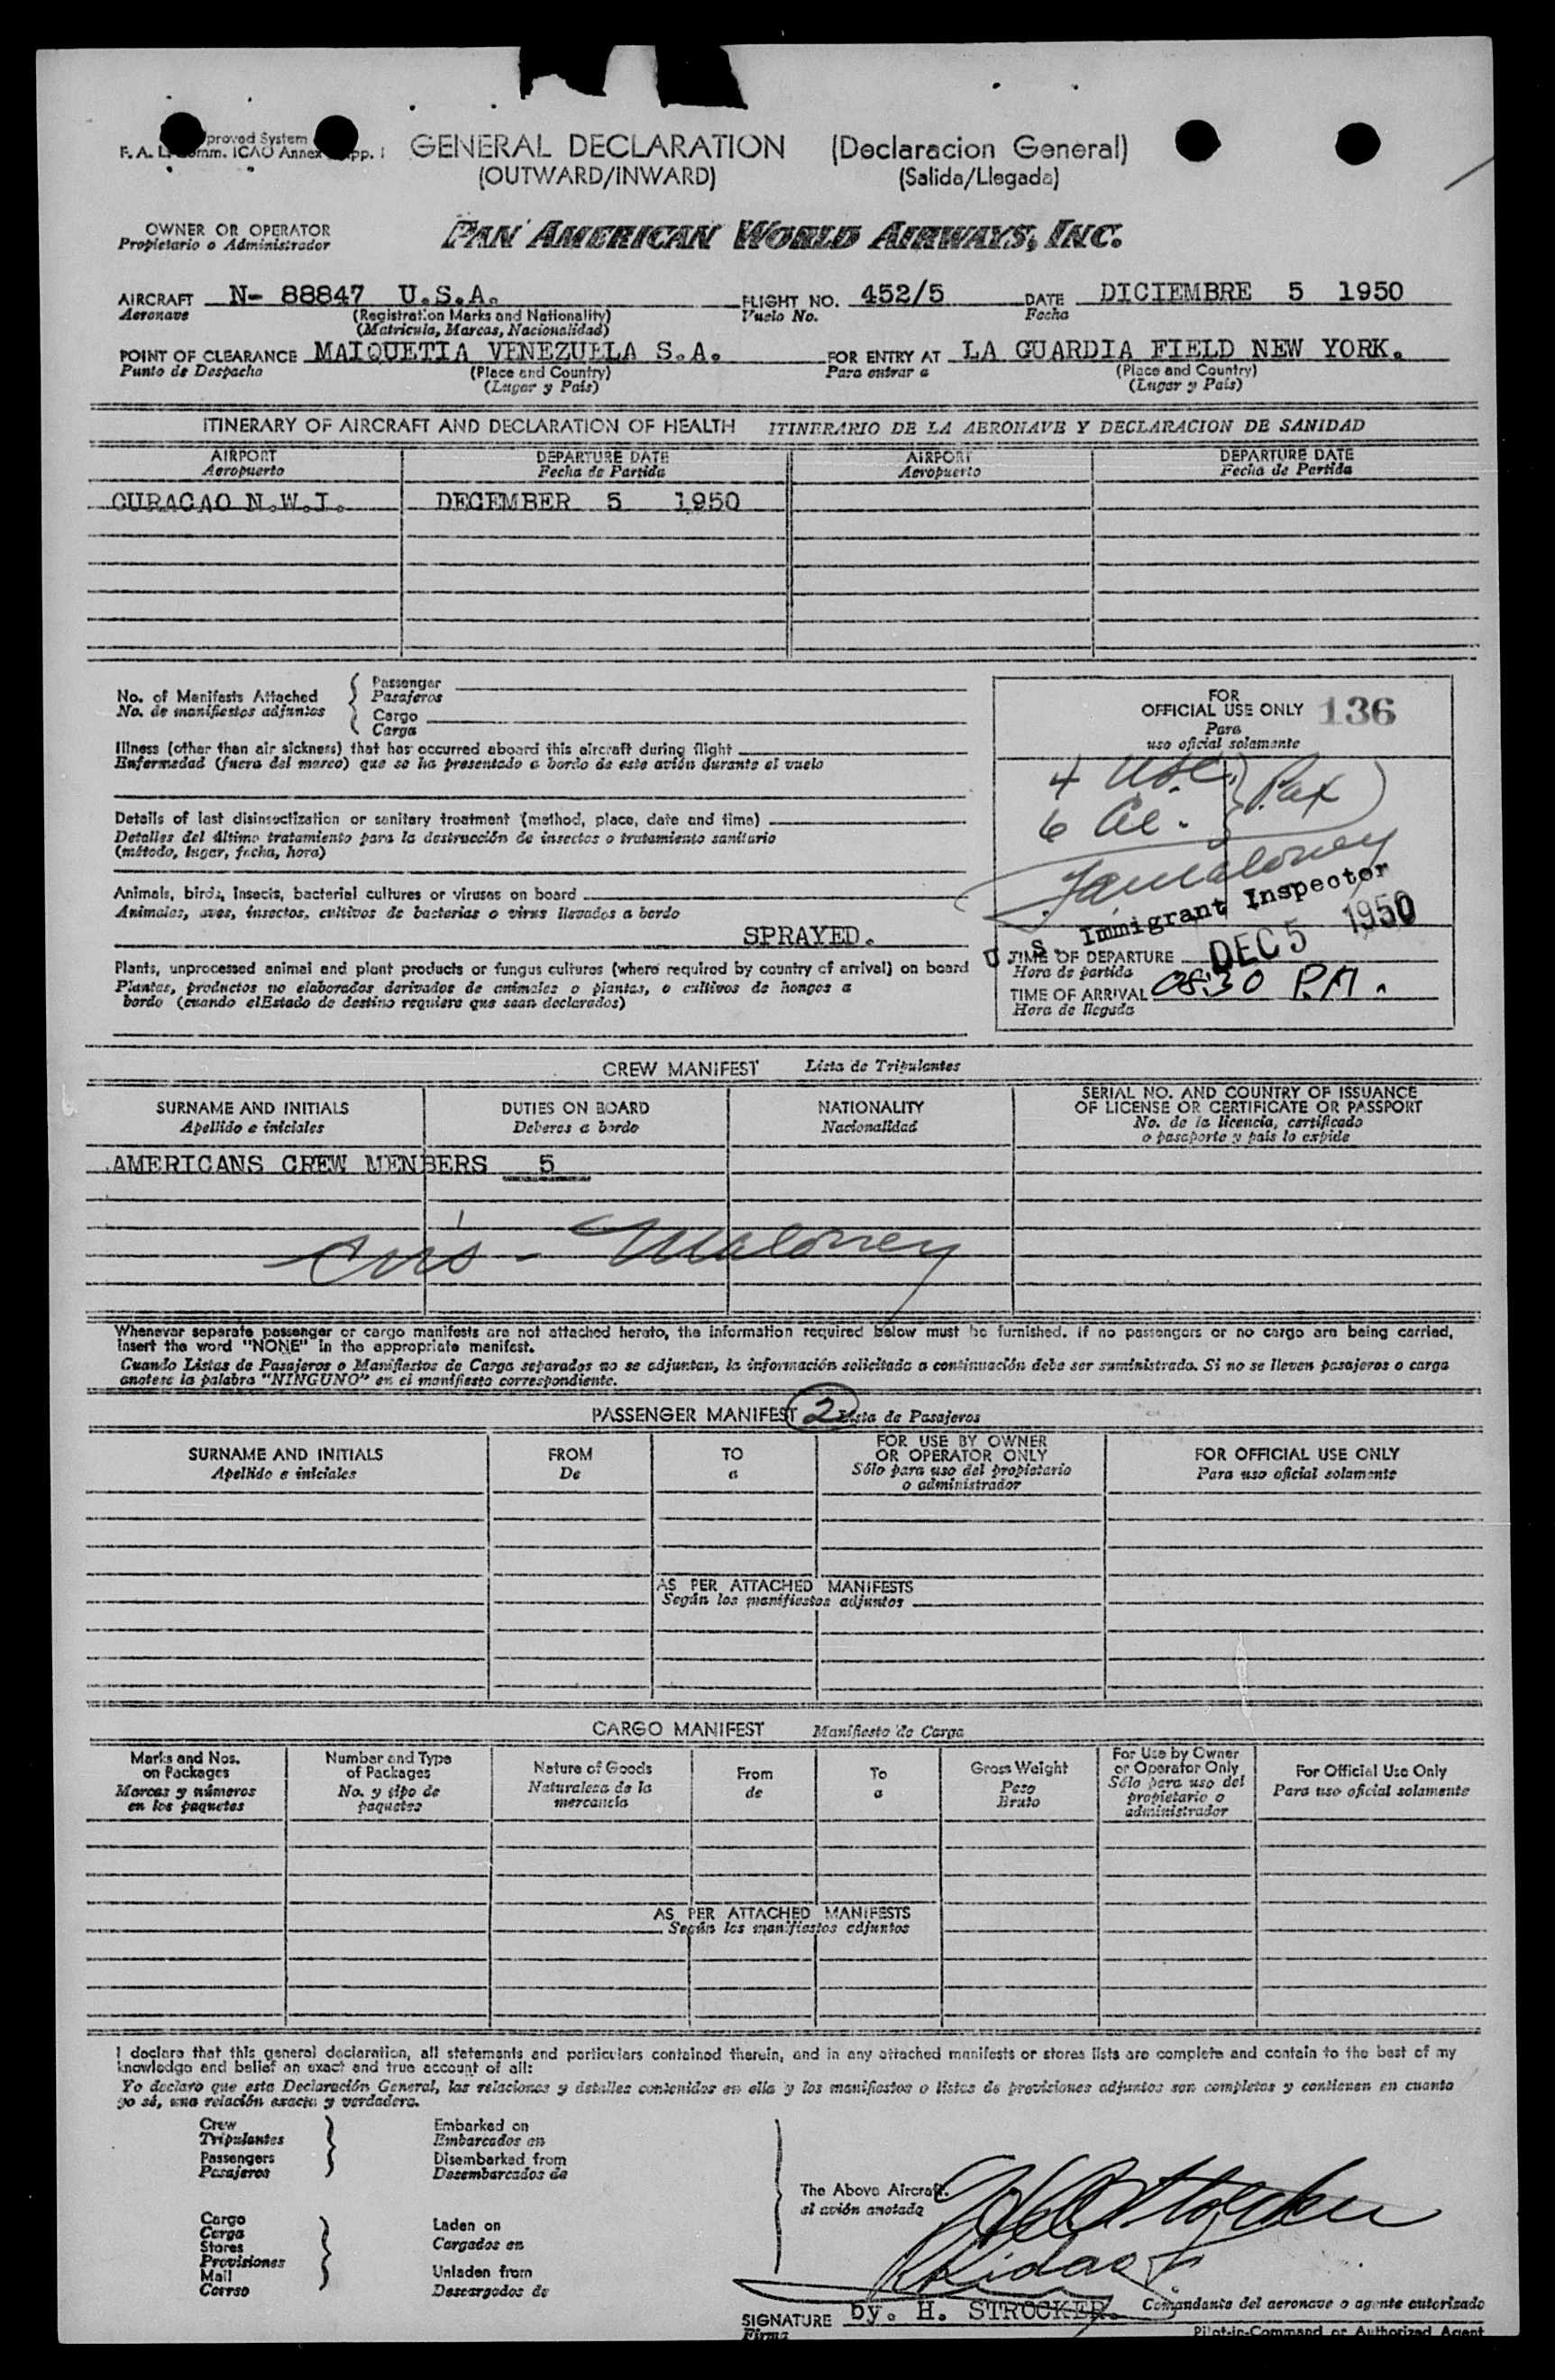 proved System
F. A. L. Comm. ICAO Annex App. I
GENERAL DECLARATION (Declaracion General)
(OUTWARD/INWARD) (Salida/Llegada)
OWNER OR OPERATOR
Propietario o Administrador
PAN AMERICAN WORLD AIRWAYS, INC.
AIRCRAFT N- 88847 U.S.A. FLIGHT NO. 452/5 DATE DICIEMBRE 5 1950
Aeronave (Registration Marks and Nationality) Vuelo No. Fecha
(Matricula, Marcas, Nacionalidad)
POINT OF CLEARANCE MAIQUETIA VENEZUELLA S.A. FOR ENTRY AT LA GUARDIA FIELD NEW YORK.
Punto de Despacho (Place and Country) Para entrar a (Place and Country)
(Lugar y País) (Lugar y País)
ITINERARY OF AIRCRAFT AND DECLARATION OF HEALTH ITINERARIO DE LA AERONAVE Y DECLARACION DE SANIDAD
AIRPORT DEPARTURE DATE AIRPORT DEPARTURE DATE
Aeropuerto Fecha de Partida Aeropuerto Fecha de Partida
CURACAO N.W.I. DECEMBER 5 1950
No. of Manifests Attached
No. de manifiestos adjuntos
Passenger
Pasajeros
Cargo
Carga
Illness (other than air sickness) that has occurred aboard this aircraft during flight
Enfermedad (fuera del mareo) que se ha presentado a bordo de este avión durante el vuelo
Details of last disinsectization or sanitary treatment (method, place, date and time)
Detalles del último tratamiento para la destrucción de insectos o tratamiento sanitario
(método, lugar, fecha, hora)
Animals, birds, insects, bacterial cultures or viruses on board
Animales, aves, insectos, cultivos de bacterias o virus llevados a bordo
SPRAYED.
Plants, unprocessed animal and plant products or fungus cultures (where required by country of arrival) on board
Plantas, productos no elaborados derivados de animales o plantas, o cultivos de hongos a
bordo (cuando elEstado de destino requiere que sean declarados)
FOR
OFFICIAL USE ONLY 136
Para
uso oficial solamente
4 USC. Pax
6 Al.
Maloney
U. S. Immigrant Inspector
DEC 5 1950
TIME OF DEPARTURE
Hora de partida
TIME OF ARRIVAL 08:30 P.M.
Hora de llegada
CREW MANIFEST Lista de Tripulantes
SURNAME AND INITIALS DUTIES ON BOARD NATIONALITY SERIAL NO. AND COUNTRY OF ISSUANCE
OF LICENSE OR CERTIFICATE OR PASSPORT
Apellido e iniciales Deberes a bordo Nacionalidad No. de la licencia, certificado
o pasaporte y país lo expide
AMERICANS CREW MENBERS 5
Maloney
Whenever separate passenger or cargo manifests are not attached hereto, the information required below must be furnished. If no passengers or no cargo are being carried,
insert the word "NONE" in the appropriate manifest.
Cuando Listas de Pasajeros o Manifiestos de Carga separados no se adjuntan, la información solicitada a continuación debe ser suministrada. Si no se lleven pasajeros o carga
anotese la palabra "NINGUNO" en el manifiesto correspondiente.
PASSENGER MANIFEST 2 Lista de Pasajeros
SURNAME AND INITIALS FROM TO FOR USE BY OWNER
OR OPERATOR ONLY FOR OFFICIAL USE ONLY
Apellido e iniciales De a Sólo para uso del propietario
o administrador Para uso oficial solamente
AS PER ATTACHED MANIFESTS
Según los manifiestos adjuntos
CARGO MANIFEST Manifiesto de Carga
Marks and Nos.
on Packages
Marcas y números
en los paquetes
Number and Type
of Packages
No. y tipo de
paquetes
Nature of Goods
Naturaleza de la
mercancía
From
de
To
a
Gross Weight
Peso
Bruto
For Use by Owner
or Operator Only
Sólo para uso del
propietario o
administrador
For Official Use Only
Para uso oficial solamente
AS PER ATTACHED MANIFESTS
Según los manifiestos adjuntos
I declare that this general declaration, all statements and particulars contained therein, and in any attached manifests or stores lists are complete and contain to the best of my
knowledge and belief an exact and true account of all:
Yo declaro que esta Declaración General, las relaciones y detalles contenidos en ella y los manifiestos o listas de provisiones adjuntos son completos y contienen en cuanto
yo sé, una relación exacta y verdadera.
Crew
Tripulantes
Passengers
Pasajeros
Embarked on
Embarcados en
Disembarked from
Desembarcados de
Cargo
Carga
Stores
Provisiones
Mail
Correo
Laden on
Cargados en
Unladen from
Descargados de
The Above Aircraft.
el avión anotado
SIGNATURE by. H. STROCKER.
Firma
Comandante del aeronave o agente autorizado
Pilot-in-Command or Authorized Agent